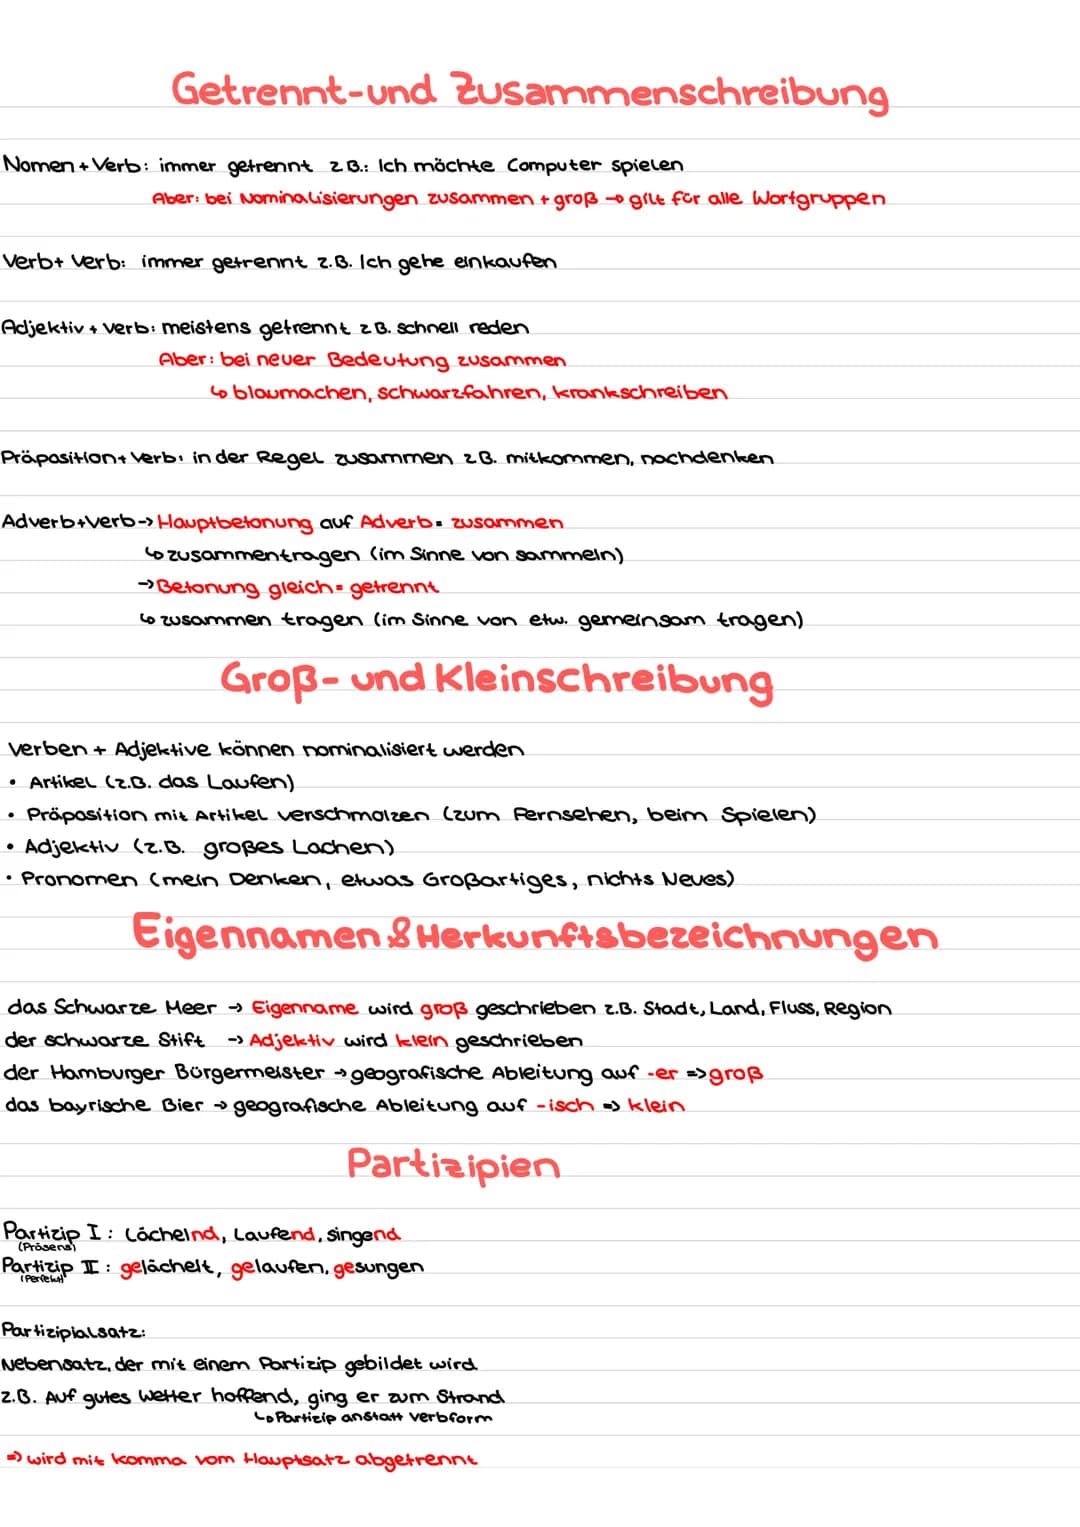 Getrennt-und Zusammenschreibung
Nomen + Verb: immer getrennt z.B.: Ich möchte Computer spielen
Aber: bei Nominalisierungen zusammen + groß → gilt für alle Wortgruppen
Verb+ Verb: immer getrennt z.B. Ich gehe einkaufen
Adjektiv + Verb: meistens getrennt z.B. schnell reden
Aber: bei neuer Bedeutung zusammen
↳ blaumachen, schwarzfahren, krankschreiben
Präposition+ Verb: in der Regel zusammen z.B. mitkommen, nachdenken
Adverb+Verb-> Hauptbetonung auf Adverb= zusammen
↳ zusammentragen (im Sinne von sammeln)
→ Betonung gleich= getrennt
↳ zusammen tragen (im Sinne von etw. gemeinsam tragen)
Groß- und Kleinschreibung
Verben + Adjektive können nominalisiert werden
• Artikel (z.B. das Laufen)
• Präposition mit Artikel verschmolzen (zum Fernsehen, beim Spielen)
• Adjektiv (z.B. großes Lachen)
• Pronomen (mein Denken, etwas Großartiges, nichts Neues)
Eigennamen & Herkunftsbezeichnungen
das Schwarze Meer → Eigenname wird groß geschrieben z.B. Stadt, Land, Fluss, Region
der schwarze Stift -> Adjektiv wird klein geschrieben
der Hamburger Bürgermeister → geografische Ableitung auf -er => groß
das bayrische Bier → geografische Ableitung auf -isch => klein
Partizipien
Partizip I: Lächelnd, Laufend, singend
(Präsens)
Partizip II: gelächelt, gelaufen, gesungen
(Perfekt)
Partizipialsatz:
Nebensatz, der mit einem Partizip gebildet wird
z.B. Auf gutes Wetter hoffend, ging er zum Strand
↳ Partizip anstatt Verbform
=> wird mit Komma vom Hauptsatz abgetrennt